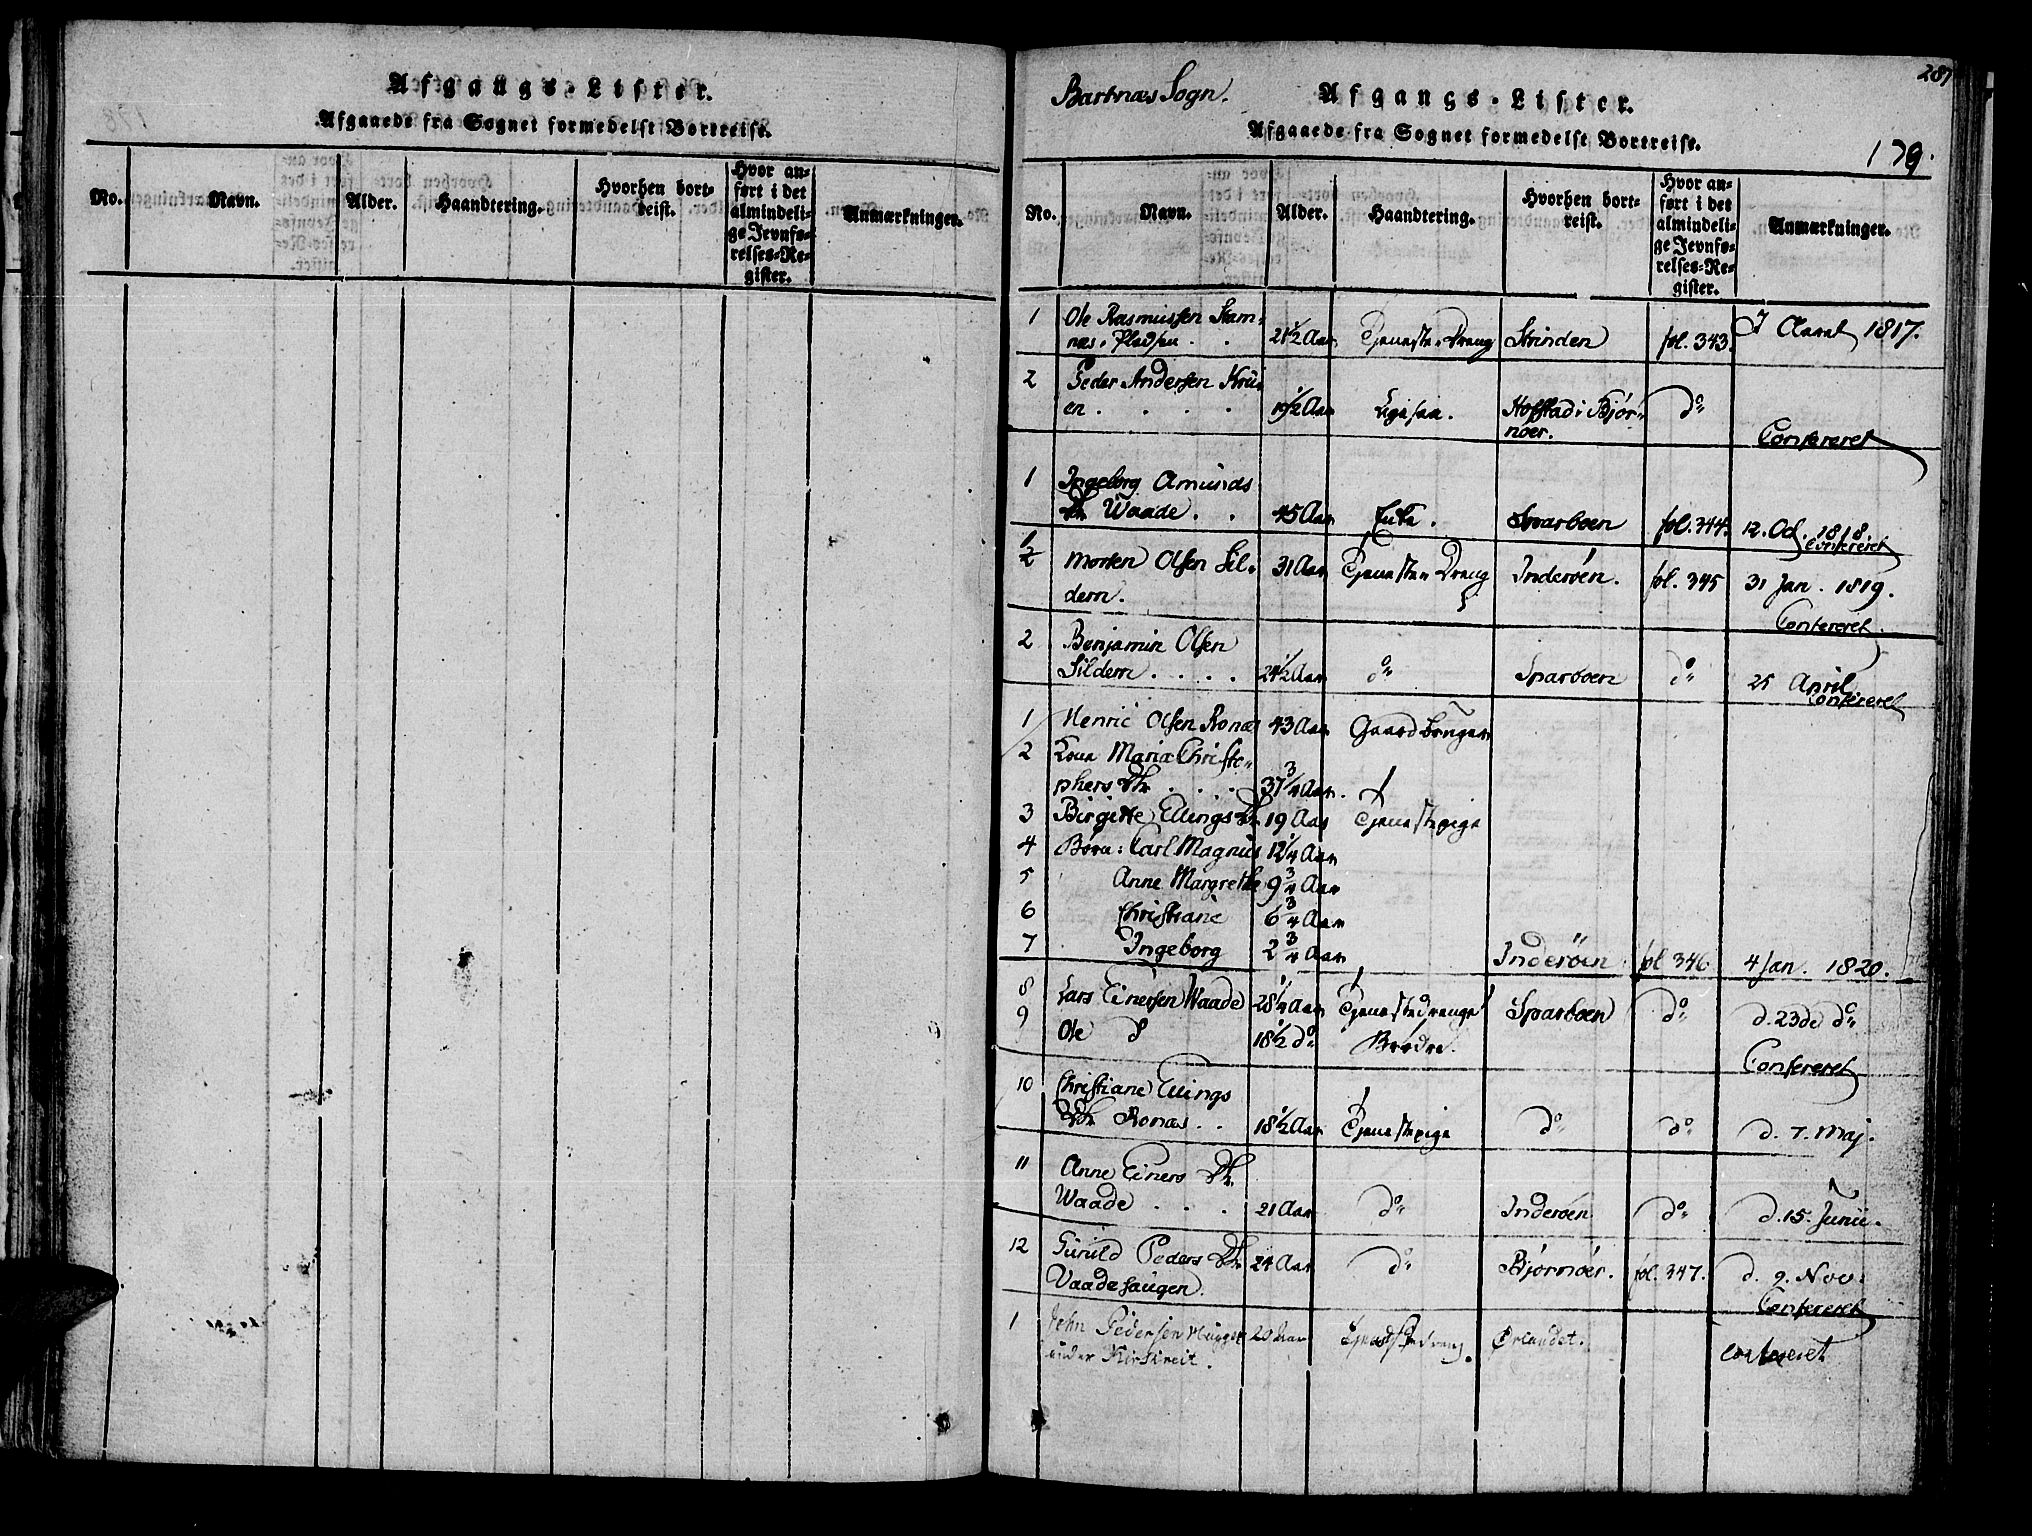 Afgangs-Lister.
Afgaaede fra Sognet formedelst Bortreise.
No.
Navn.
Alder.
Haandtering.
Hvorhen bort-
reist.
Hvor an-
ført i det
almindeli-
ge Jevnfø-
relses-Re-
gister.
Anmærkninger.
287
Bartnæs Sogn.
Afgangs-Lister.
Afgaaede fra Sognet formedelst Bortreise.
179.
No.
Navn.
Alder.
Haandtering.
Hvorhen bort-
reist.
Hvor an-
ført i det
almindeli-
ge Jevnfø-
relses-Re-
gister.
Anmærkninger.
1 Ole Rasmussen Stam-
næs Pladsen . . 21½ Aar Tjeneste Dreng Strinden fol. 343. I Aaret 1817.
2 Peder Andersen
en . . . . ½ Aar Ligesaa. Hofstad i Bjør-
nøer. do Confereret
1 Ingeborg Amunds
Dtr Waade . . 45 Aar Enke. Sparboen fol. 344. 12. Oct. 1818.
Confereret
½ Morten Olsen Sil-
dem. 31 Aar Tjeneste Dreng Inderøen. fol. 345 31 Jan. 1819.
Confereret
2 Benjamin Olsen
Sildem . . . . 21½ Aar do Sparboen do 25 April
Confereret
1 Henric Olsen Ronæs 43 Aar Gaardbruger
2 Kone Maria Christo-
phers Dtr . . . . 37¾ Aar.
3 Birgitte Ellings Dtr 19 Aar Tjenestepige
4 Børn: Carl Magnus 12¼ Aar
5 Anne Margrethe 9¾ Aar
6 Christiane 6¾ Aar
7 Ingeborg 2¾ Aar Inderøen fol 346 4 Jan. 1820.
8 Lars Einersen Waade 28¼ Aar Tjenestedrenge Sparboen do d. 23de do
9 Ole do 18½ do Brødre.
Confereret
10 Christiane Ellings
Dtr Ronæs . . 18½ Aar Tjenestepige do do d. 7. Maj.
11 Anne Einers Dtr
Waade . . . 21 Aar do Inderøen do d. 15. Junii.
12 Gunild Peders Dtr 24 Aar do Bjørnøer. fol. 347. d. 9. Nov.
Vaadesaugen.
Confereret
1 John Pedersen 20 Aar Tjenestedreng. Ørlandet.
under Kirkreit. confereret